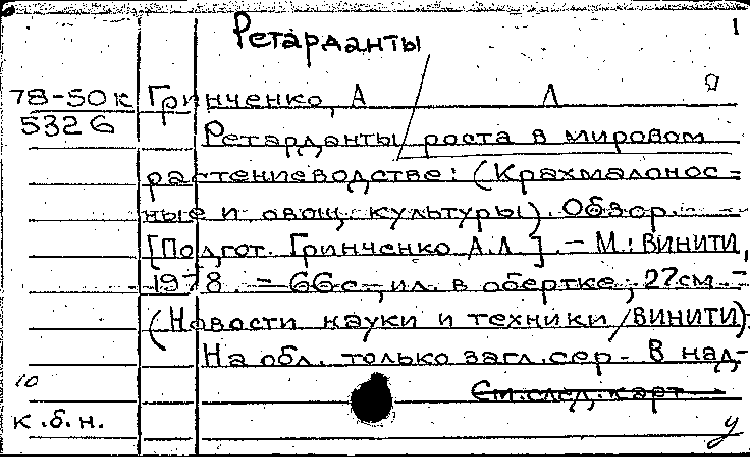 Ретарданты 1
78-50к Гринченко, А Л
5326 Ретарданты роста в мировом
растениеводстве: (Крахмалонос=
ные и овощ. культуры). Обзор. -
[Подгот. Гринченко А.Л.]. - М.: ВИНИТИ,
1978. - 66 с., ил. в обертке; 27 см. -
(Новости науки и техники / ВИНИТИ)
На обл. только загл. сер. - В над-
10 См. след. карт
к.б.н. у